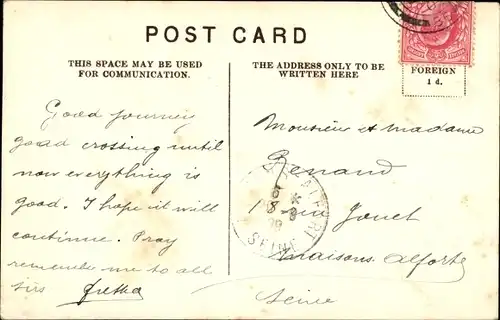 POST CARD
THIS SPACE MAY BE USED
FOR COMMUNICATION.
THE ADDRESS ONLY TO BE
WRITTEN HERE
FOREIGN
1 d.
Good journey
good crossing until
now everything is
good. I hope it will
continue. Pray
remember me to all
Monsieur et madame
Renaud
18 rue Jouet
maisons alfort
Seine
ALFORT
SEINE